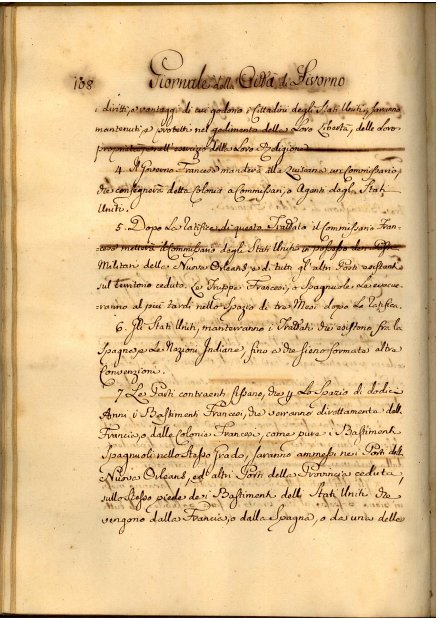 138 Giornale della Città di Livorno
i diritti, e vantaggi di cui godono i Cittadini degli Stati Uniti, saranno
mantenuti, e protetti nel godimento della Loro Libertà, delle Loro
proprietà, e nell'esercizio della Loro Religione.
4. Il Governo Francese manderà alla Luisiana un Commissario,
che consegnerà detta Colonia a Commissari, o Agenti degli Stati
Uniti.
5. Dopo la ratifica di questo Trattato il Commissario Fran-
cese metterà il Commissario degli Stati Uniti in possesso dei Posti
Militari della Nuova Orleans, e di tutti gl'altri Porti esistenti
sul territorio ceduto. Le Truppe Francesi, e Spagnuole lo evacue-
ranno al più tardi nello spazio di tre Mesi dopo la ratifica.
6. Gli Stati Uniti, manterranno i Trattati che esistono fra la
Spagna, e le Nazioni Indiane, fino a che sieno formate altre
Convenzioni.
7. Le Parti contraenti fissano, che per lo spazio di dodici
Anni i Bastimenti Francesi, che verranno direttamente dalla
Francia, o dalle Colonie Francesi, come pure i Bastimenti
Spagnuoli nello stesso grado, saranno ammessi nei Porti della
Nuova Orleans, ed altri Porti della Provincia ceduta,
sullo stesso piede dei Bastimenti delli Stati Uniti che
vengono dalla Francia, o dalla Spagna, o da una delle